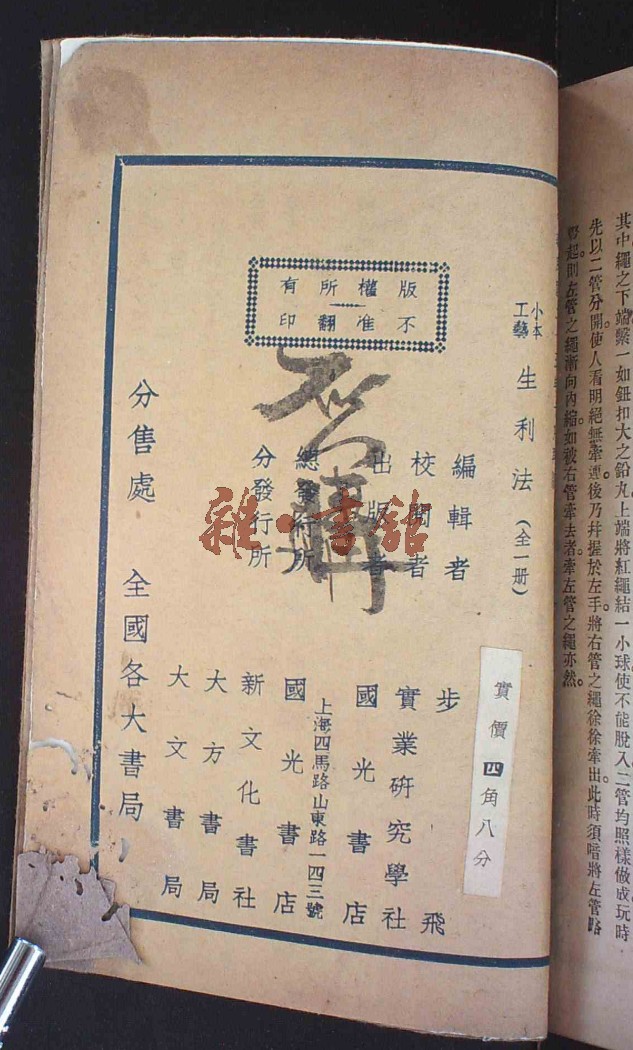 其中繩之下端繫一如鈕扣大之鉛丸上端將紅繩結一小球使不能脫入二管均照樣做成玩時
先以二管分開。使人看明絕無牽連。後乃幷握於左手。將右管之繩徐徐牽出。此時須暗將左管略
起。則左管之繩漸向內縮。如被右管牽去者。牽左管之繩亦然。
版權所有
不准翻印
小本工藝 生利法（全一册）
實價四角八分
編輯者 步飛
校閱者 實業研究學社
出版者 國光書店
上海四馬路山東路一四三號
總發行所 國光書店
分發行所 新文化書社
大方書局
大文書局
分售處 全國各大書局
雜·書館